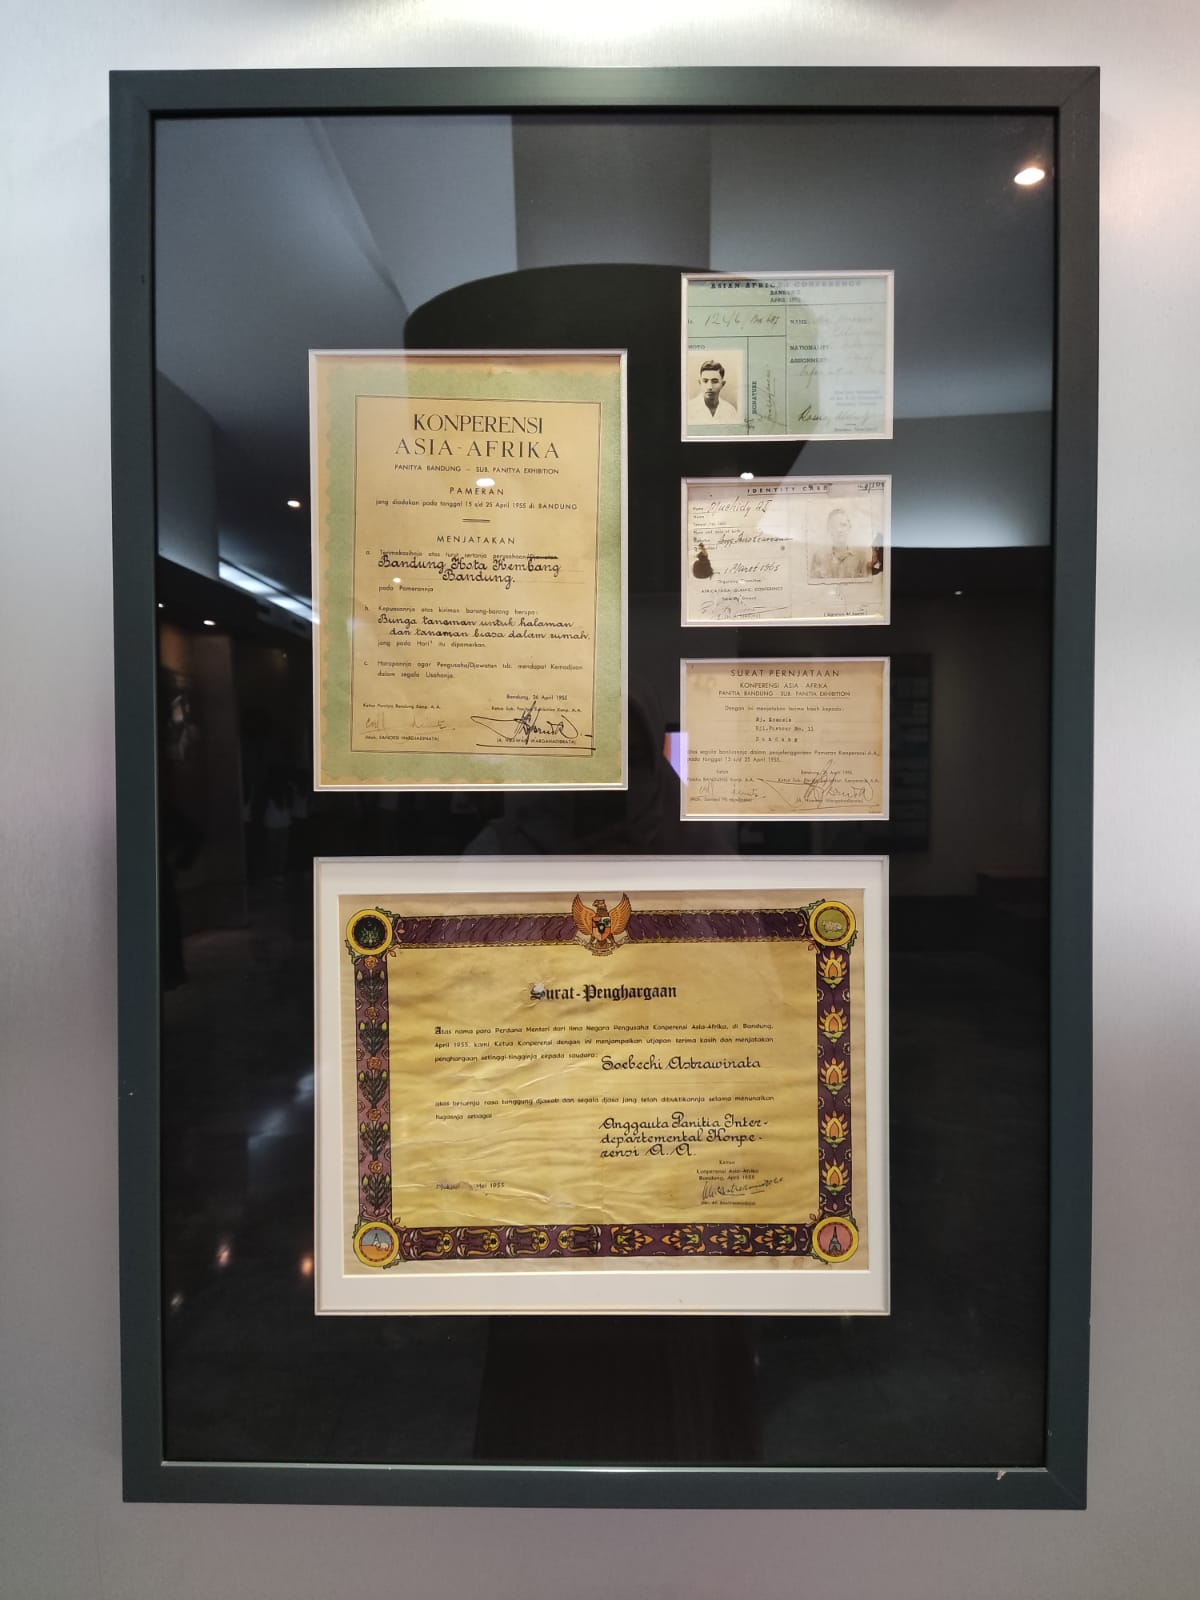 KONPERENSI
ASIA-AFRIKA
PANITYA BANDUNG — SUB. PANITYA EXHIBITION
PAMERAN
jang diadakan pada tanggal 15 s/d 25 April 1955 di BANDUNG
MENJATAKAN
a. Terimakasihnja atas turut sertanja perusahaan/Djawatan
Bandung Kota Kembang
Bandung.
pada Pamerannja
b. Kepuasannja atas kiriman barang-barang berupa:
Bunga tanaman untuk halaman
dan tanaman biasa dalam rumah.
jang pada Hari² itu dipamerkan.
c. Harapannja agar Pengusaha/Djawatan tsb. mendapat Kemadjuan
dalam segala Usahanja.
Bandung, 26 April 1955
Ketua Panitya Bandung Konp. A.A.
Ketua Sub. Panitya Exhibition Konp. A.A.
ASIAN-AFRICAN CONFERENCE
BANDUNG
APRIL 1955
NAME
NATIONALITY
ASSIGNMENT
PHOTO
SIGNATURE
IDENTITY CARD
Name
1 Maret 1965
Organizing Committee
SURAT PERNJATAAN
KONPERENSI ASIA-AFRIKA
PANITIA BANDUNG SUB. PANITIA EXHIBITION
Dengan ini menjatakan terima kasih kepada:
Dji.Pasteur No. 11
Bandung
atas segala bantuannja dalam penjelenggaraan Pameran Konperensi A.A.
pada tanggal 15 s/d 25 April 1955.
Ketua
Panitia BANDUNG Konp. A.A.
Surat-Penghargaan
Atas nama para Perdana Menteri dari lima Negara Pengusaha Konperensi Asia-Afrika, di Bandung,
April 1955, kami Ketua Konperensi dengan ini menjampaikan utjapan terima kasih dan menjatakan
penghargaan setinggi-tingginja kepada saudara:
Soebechi Astrawinata
atas besarnja rasa tanggung djawab dan segala djasa jang telah dibuktikannja selama menunaikan
tugasnja sebagai
Anggauta Panitia Inter-
departemental Konpe-
rensi A.A.
Ketua
Konperensi Asia-Afrika
Bandung, April 1955
Mei 1955